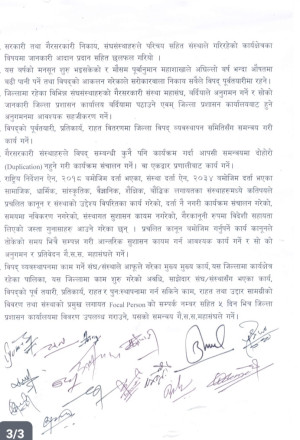 , सरकारी तथा गैरसरकारी निकाय, संघसंस्थाहरुले परिचय सहित संस्थाले गरिरहेको कार्यक्षेत्रका
विषयमा जानकारी आदान प्रदान सहित छलफल गरियो ।
यस वर्षको मनसुन शुरु भइसकेको र मौसम पूर्वानुमान महाशाखाले अघिल्लो वर्ष भन्दा औषतमा
बढी पानी पर्ने तथा विपद्को आकलन गरेकाले सरोकारवाला निकाय सबैले विपद् पूर्वतयारीमा रहने।
जिल्लामा रहेका विभिन्न संघसंस्थाहरुको गैरसरकारी संस्था महासंघ, बर्दियाले अनुगमन गर्ने र सोको
जानकारी जिल्ला प्रशासन कार्यालय बर्दियामा पठाउने एवम् जिल्ला प्रशासन कार्यालयबाट हुने
अनुगमनमा आवश्यक सहजीकरण गर्ने।
विपद्को पूर्वतयारी, प्रतिकार्य, राहत वितरणमा जिल्ला विपद् व्यवस्थापन समितिसँग समन्वय गरी
कार्य गर्ने।
गैरसरकारी संस्थाहरुले विपद् सम्बन्धी कुनै पनि कार्यक्रम गर्दा आपसी समन्वयमा दोहोरो
(Duplication) नहुने गरी कार्यक्रम संचालन गर्ने। वा एकद्वार प्रणालीबाट कार्य गर्ने।
राष्ट्रिय निर्देशन ऐन, २०१८ बमोजिम दर्ता भएका, संस्था दर्ता ऐन, २०३४ बमोजिम दर्ता भएका
सामाजिक, धार्मिक, सांस्कृतिक, वैज्ञानिक, शैक्षिक, बौद्धिक लगायतका संस्थाहरुमध्ये कतिपयले
प्रचलित कानून र संस्थाको उद्देश्य विपरितका कार्य गरेको, दर्ता नै नगरी कार्यक्रम संचालन गरेको,
समयमा नविकरण नगरेको, संस्थागत सुशासन कायम नगरेको, गैरकानूनी रुपमा विदेशी सहायता
लिएको जस्ता गुनासाहरु आउने गरेका छन् । प्रचलित कानून बमोजिम गर्नुपर्ने कार्य कानूनले
तोकेको समय भित्रै सम्पन्न गरी आन्तरिक सुशासन कायम गर्न आवश्यक कार्य गर्ने र सो को
अनुगमन र प्रतिवेदन गै.स.स. महासंघले गर्ने।
विपद् व्यवस्थापनमा काम गर्ने संघ/संस्थाले आफूले गरेका मुख्य मुख्य कार्य, यस जिल्लामा कार्यक्षेत्र
रहेका पालिका, यस जिल्लामा काम शुरु गरेको अवधि, साझेदार संघ/संस्थासँग भएका कार्य,
विपद्को पूर्व तयारी, प्रतिकार्य, राहत र पुनःस्थापनामा गर्न सकिने काम, राहत तथा उद्दार सामग्रीको
विवरण तथा संस्थाको प्रमुख लगायत Focal Person को सम्पर्क नम्बर सहित ५ दिन भित्र जिल्ला
प्रशासन कार्यालयमा विवरण उपलब्ध गराउने, यसको समन्वय गै.स.स.महासंघले गर्ने।
3/3